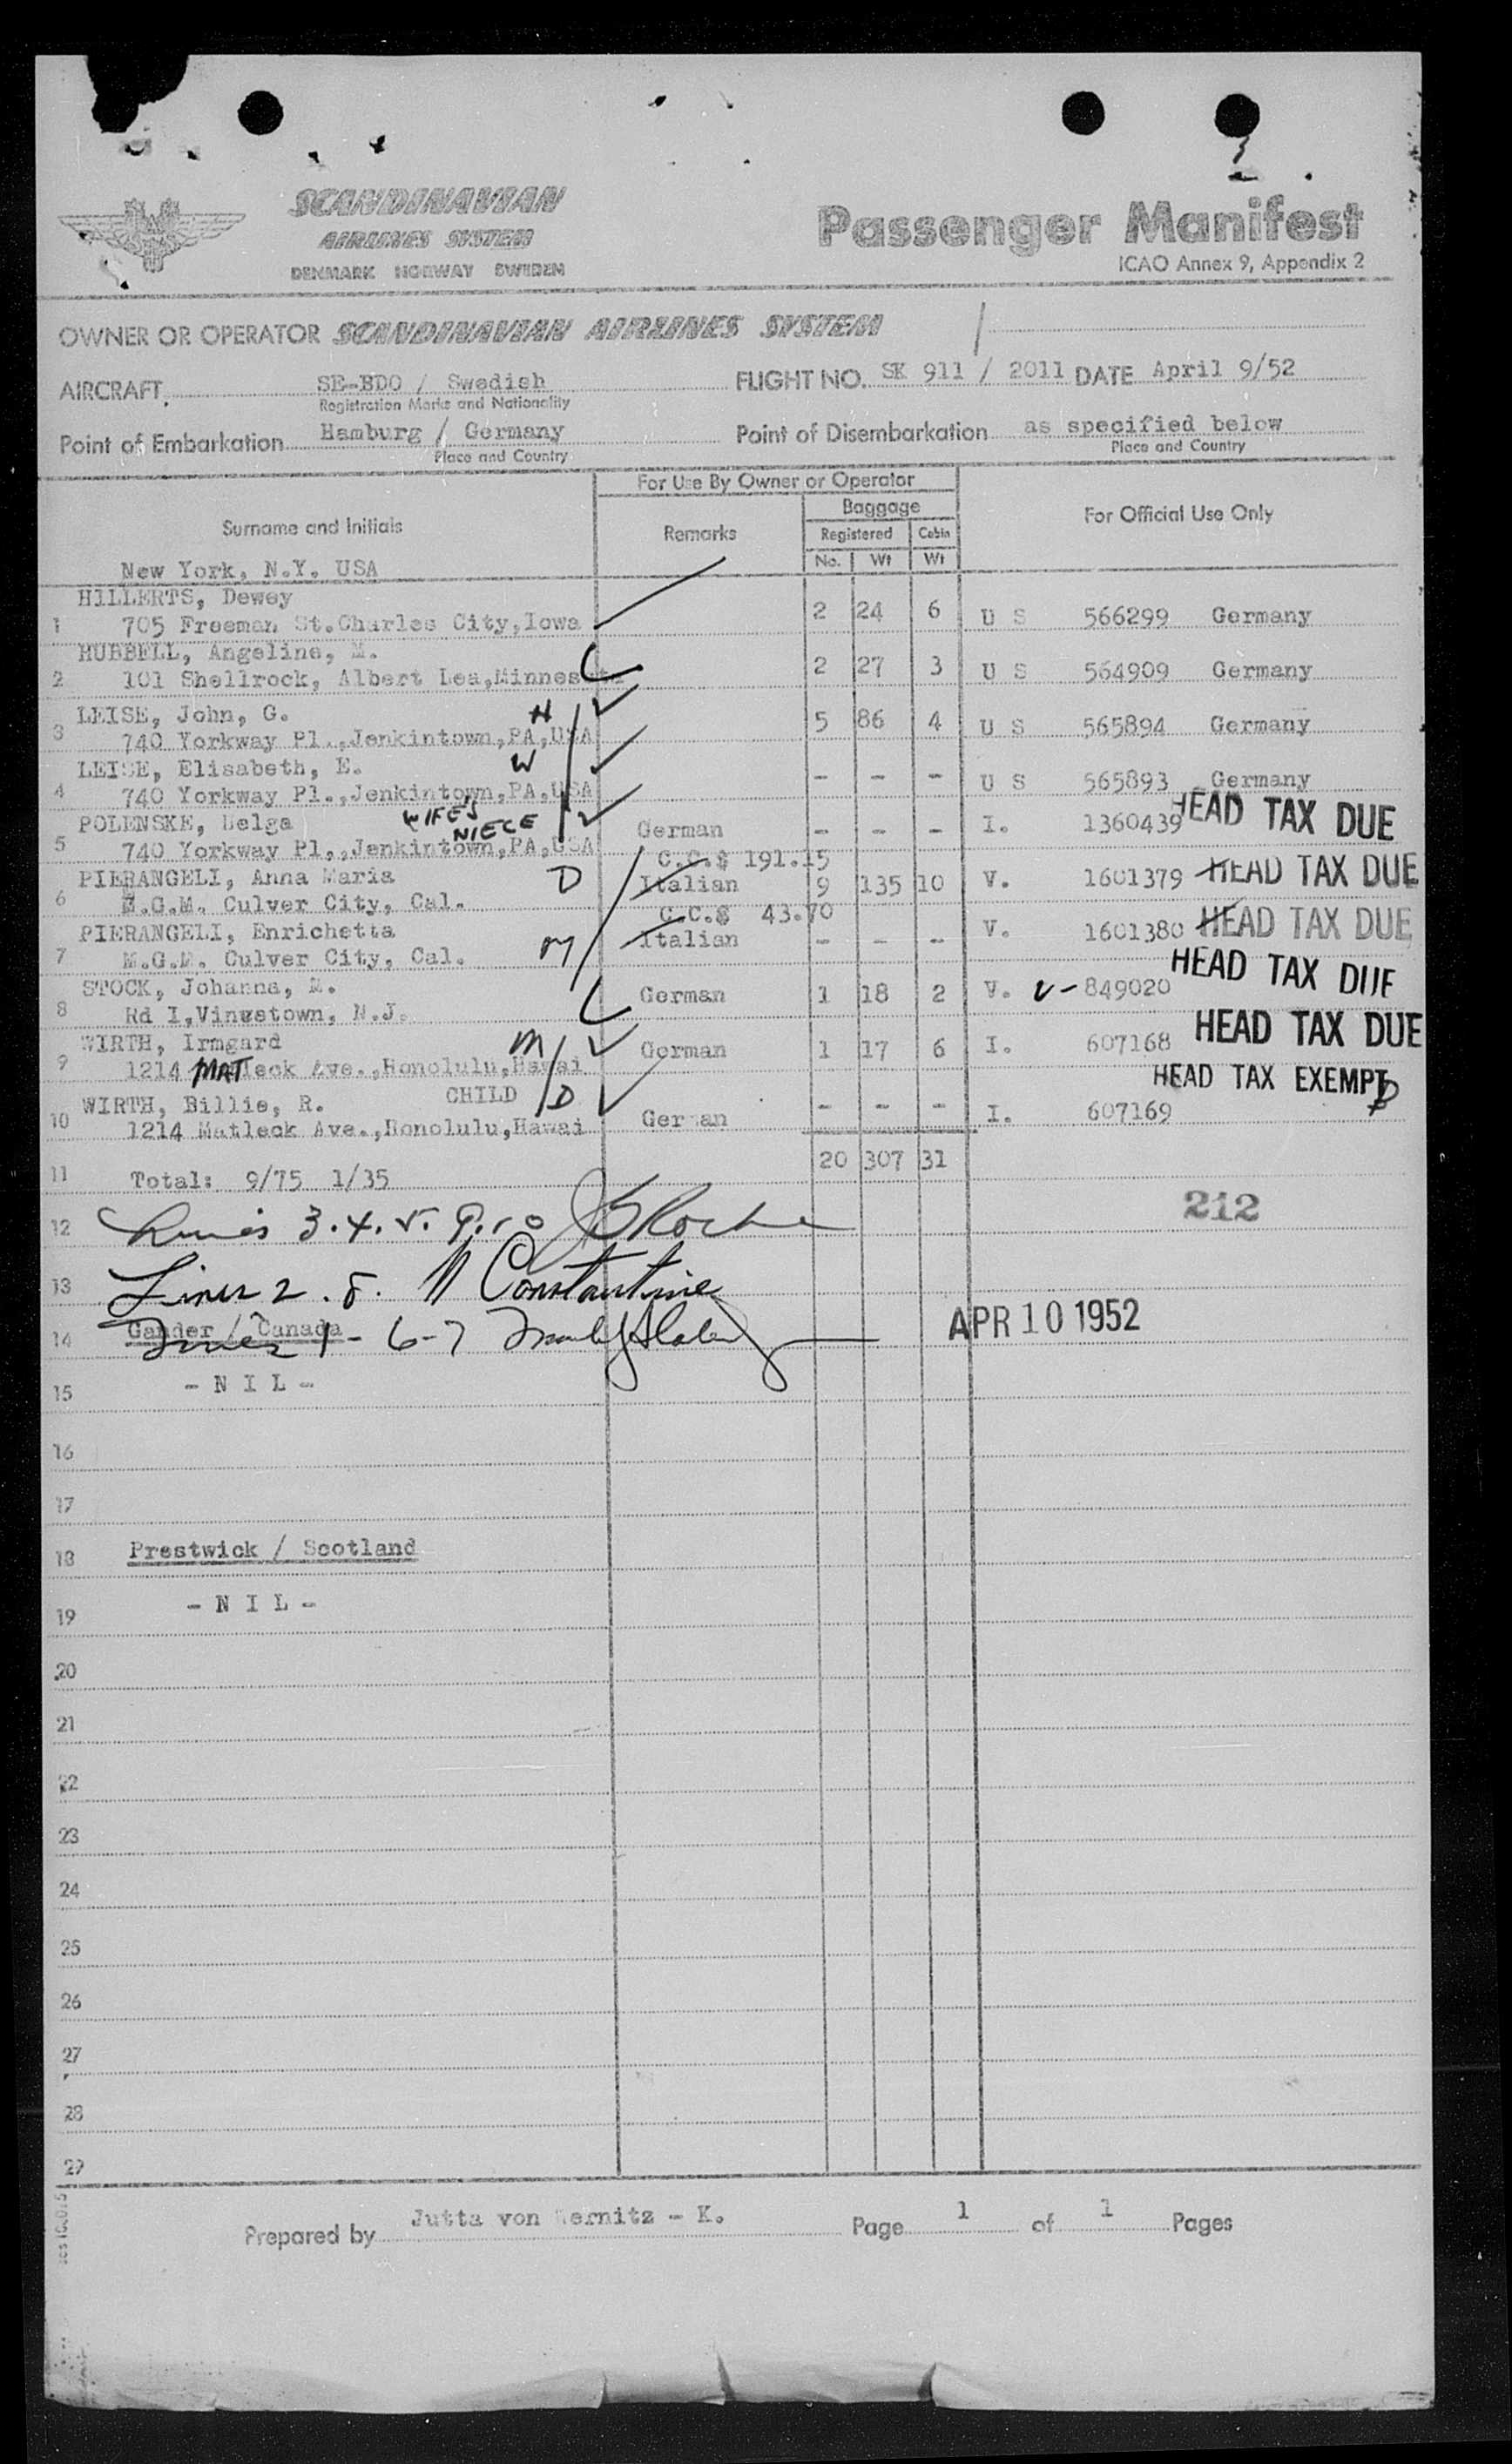 SCANDINAVIAN
AIRLINES SYSTEM
DENMARK NORWAY SWEDEN
Passenger Manifest
ICAO Annex 9, Appendix 2
OWNER OR OPERATOR SCANDINAVIAN AIRLINES SYSTEM
AIRCRAFT SE-BDO / Swedish FLIGHT NO. SK 911 / 2011 DATE April 9/52
Registration Marks and Nationality
Point of Embarkation Hamburg / Germany Point of Disembarkation as specified below
Place and Country Place and Country
For Use By Owner or Operator
Surname and Initials Remarks Baggage For Official Use Only
Registered Cabin
No. Wt Wt
New York, N.Y. USA
HILLERTS, Dewey
1 705 Freeman St.Charles City,Iowa 2 24 6 U S 566299 Germany
HUBBELL, Angeline, M.
2 101 Shellrock, Albert Lea,Minnes 2 27 3 U S 564909 Germany
LEISE, John, G. H
3 740 Yorkway Pl.,Jenkintown,PA,USA 5 86 4 U S 565894 Germany
LEISE, Elisabeth, E. W
4 740 Yorkway Pl.,Jenkintown,PA,USA - - - U S 565893 Germany
POLENSKE, Helga WIFE'S NIECE German - - - I. 1360439 HEAD TAX DUE
5 740 Yorkway Pl,,Jenkintown,PA,USA
C.C.$ 191.15
PIERANGELI, Anna Maria D Italian 9 135 10 V. 1601379 HEAD TAX DUE
6 M.G.M. Culver City, Cal.
C.C.$ 43.70
PIERANGELI, Enrichetta M Italian - - - V. 1601380 HEAD TAX DUE
7 M.G.M. Culver City, Cal.
STOCK, Johanna, M. German 1 18 2 V. V- 849020 HEAD TAX DUE
8 Rd I,Vinestown, N.J.
WIRTH, Irmgard M German 1 17 6 I. 607168 HEAD TAX DUE
9 1214 MATleck Ave.,Honolulu,Hawai
CHILD D HEAD TAX EXEMPT
WIRTH, Billie, R. German - - - I. 607169
10 1214 Matleck Ave.,Honolulu,Hawai
20 307 31
11 Total: 9/75 1/35
212
12 3.4.5.9.10
13 Lines 2.8. Constantine
14 Gander / Canada
Lines 1-6-7
APR 10 1952
15 - N I L -
16
17
18 Prestwick / Scotland
19 - N I L -
20
21
22
23
24
25
26
27
28
29
Prepared by Jutta von Wernitz - K. Page 1 of 1 Pages